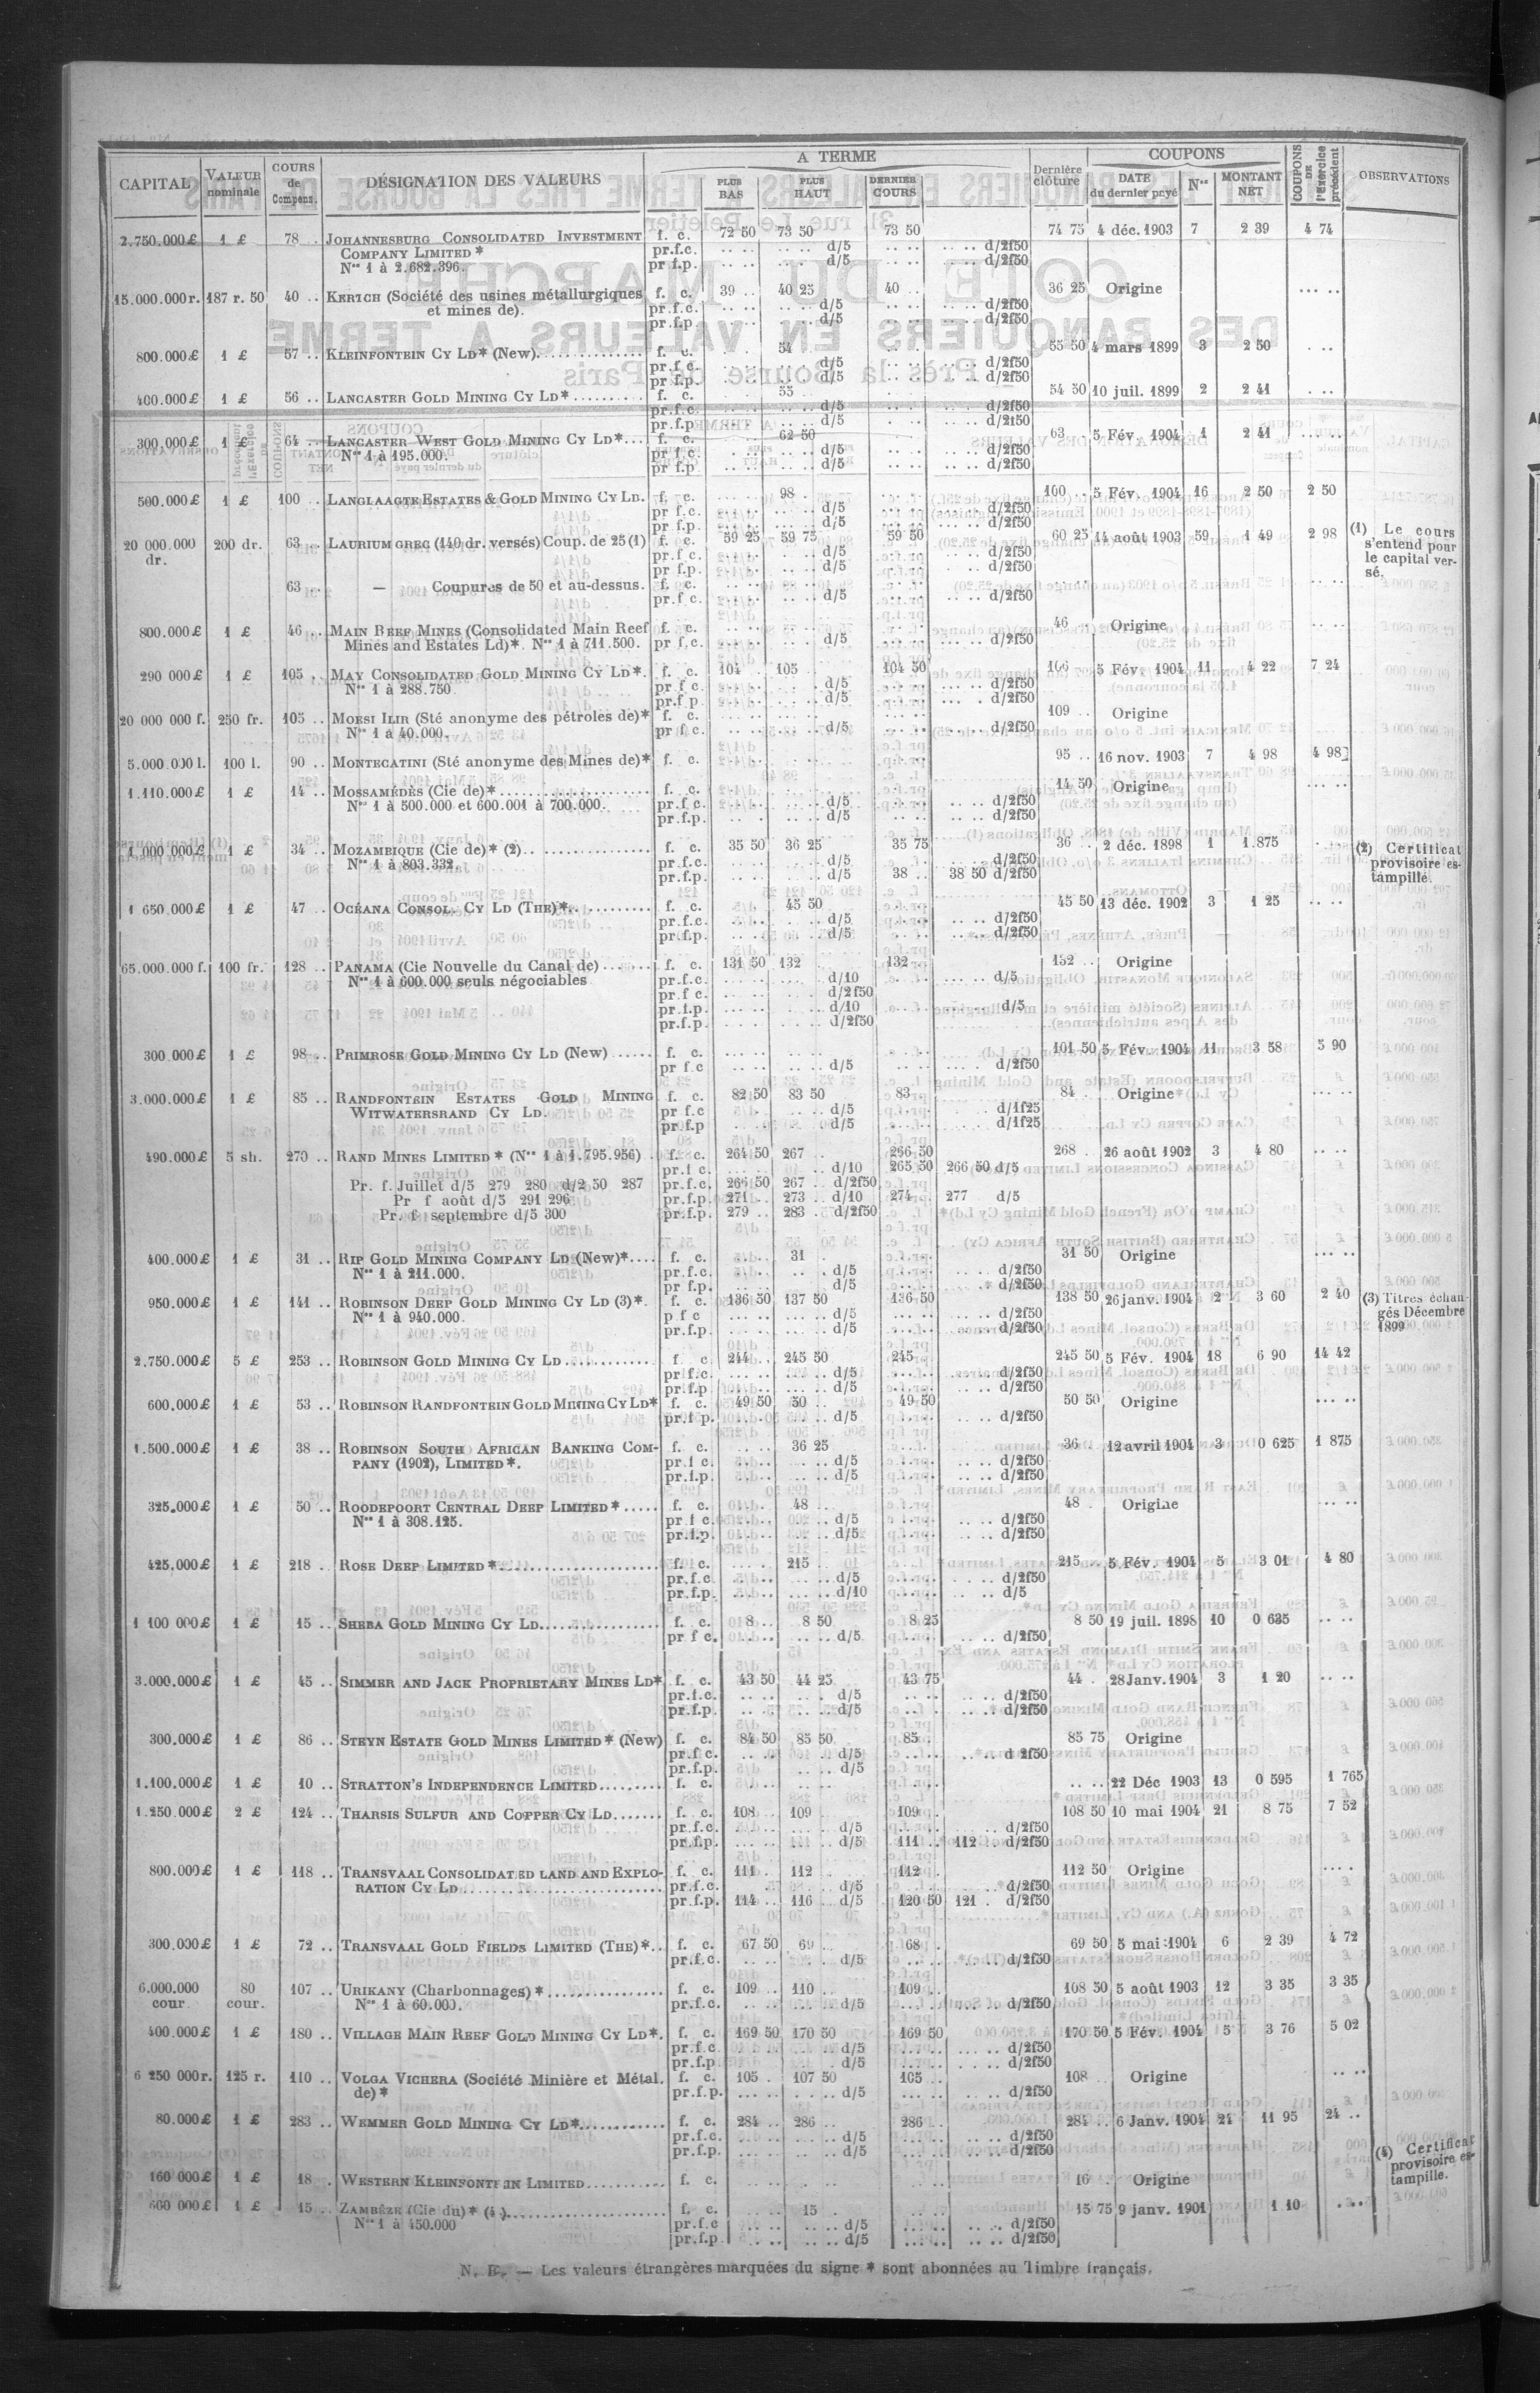 CAPITAL | VALEUR nominale | COURS de Compens. | DÉSIGNATION DES VALEURS | A TERME | PLUS BAS | PLUS HAUT | DERNIER COURS | Dernière clôture | COUPONS | DATE du dernier payé | Nos | MONTANT NET | COUPONS DE l'Exercice précédent | OBSERVATIONS
2.750.000 £ 1 £ 78 .. JOHANNESBURG CONSOLIDATED INVESTMENT f. c. 72 50 73 50 73 50 74 75 4 déc. 1903 7 2 39 4 74
COMPANY LIMITED * pr.f.c. .. .. .. .. d/5 .. .. .. .. d/2f50
Nos 1 à 2.682.396. pr f.p. .. .. .. .. d/5 .. .. .. .. d/2f50
15.000.000 r. 187 r. 50 40 .. KERTCH (Société des usines métallurgiques f. c. 39 .. 40 25 40 .. 36 25 Origine .. ..
et mines de). pr.f.c. .. .. .. .. d/5 .. .. .. .. d/2f50
pr.f.p. .. .. .. .. d/5 .. .. .. .. d/2f50
800.000 £ 1 £ 57 .. KLEINFONTEIN CY LD* (New) f. c. 54 .. 55 50 4 mars 1899 3 2 50 .. ..
pr f c. d/5 d/2f50
pr f.p. d/5 d/2f50
400.000 £ 1 £ 56 .. LANCASTER GOLD MINING CY LD* f. c. 55 54 50 10 juil. 1899 2 2 41 .. ..
pr.f.c. d/5 d/2f50
pr.f.p. d/5 d/2f50
300.000 £ 1 £ 64 .. LANCASTER WEST GOLD MINING CY LD* f. c. 62 50 63 5 Fév. 1904 1 2 41 .. ..
Nos 1 à 195.000. pr f c. d/5 d/2f50
pr f.p. d/5 d/2f50
500.000 £ 1 £ 100 .. LANGLAAGTE ESTATES & GOLD MINING CY LD. f. c. 98 . 100 .. 5 Fév. 1904 16 2 50 2 50
pr f.c. d/5 d/2f50
pr f.p. d/5 d/2f50
20 000.000 dr. 200 dr. 63 .. LAURIUM GREC (140 dr. versés) Coup. de 25 (1) f. c. 59 25 59 75 59 50 60 25 14 août 1903 59 1 49 2 98 (1) Le cours s'entend pour le capital versé.
pr f c. d/5 d/2f50
pr f.p. d/5 d/2f50
63 .. — Coupures de 50 et au-dessus. f. c. .. ..
pr.f c. d/5 d/2f50
800.000 £ 1 £ 46 .. MAIN REEF MINES (Consolidated Main Reef f. c. 46 .. Origine
Mines and Estates Ld)*. Nos 1 à 711.500. pr f.c. d/5 d/2f50
290 000 £ 1 £ 105 .. MAY CONSOLIDATED GOLD MINING CY LD*. f. c. 104 .. 105 .. 104 50 106 5 Fév. 1904 11 4 22 7 24
Nos 1 à 288.750. pr f c. d/5 d/2f50
pr.f p. d/5 d/2f50
20 000 000 f. 250 fr. 105 .. MORSI ILIR (Sté anonyme des pétroles de)* f. c. 109 .. Origine
Nos 1 à 40.000. pr f c. d/5 d/2f50
5.000.000 l. 100 l. 90 .. MONTECATINI (Sté anonyme des Mines de)* f. c. 95 .. 16 nov. 1903 7 4 98 4 98
1.110.000 £ 1 £ 14 .. MOSSAMÉDÈS (Cie de)* f. c. 14 50 Origine .. ..
Nos 1 à 500.000 et 600.001 à 700.000. pr.f c. d/5 d/2f50
pr.f.p. d/5 d/2f50
1.000.000 £ 1 £ 34 .. MOZAMBIQUE (Cie de)* (2) f. c. 35 50 36 25 35 75 36 .. 2 déc. 1898 1 1.875 (2) Certificat provisoire estampillé.
Nos 1 à 803.332. pr.f.c. d/5 d/2f50
pr.f.p. d/5 38 .. 38 50 d/2f50
1 650.000 £ 1 £ 47 .. OCÉANA CONSOL. CY LD (THE)* f. c. 45 50 45 50 13 déc. 1902 3 1 25 .. ..
pr.f.c. d/5 d/2f50
pr.f.p. d/5 d/2f50
65.000.000 f. 100 fr. 128 .. PANAMA (Cie Nouvelle du Canal de) f. c. 131 50 132 .. 132 .. 132 .. Origine
Nos 1 à 600.000 seuls négociables pr.f.c. d/10 d/5
pr.f c. d/2f50
pr.f.p. d/10 d/5
pr.f.p. d/2f50
300.000 £ 1 £ 98 .. PRIMROSE GOLD MINING CY LD (New) f. c. 101 50 5 Fév. 1904 11 3 58 5 90
pr f c d/5 d/2f50
3.000.000 £ 1 £ 85 .. RANDFONTEIN ESTATES GOLD MINING f. c. 82 50 83 50 83 84 . Origine .. ..
WITWATERSRAND CY LD. pr f.c d/5 d/1f25
pr f.p d/5 d/1f25
490.000 £ 5 sh. 270 .. RAND MINES LIMITED * (Nos 1 à 1.795.956) f. c. 264 50 267 . 266 50 268 . 26 août 1902 3 4 80 .. ..
pr.f c. d/10 265 50 266 50 d/5
Pr. f. Juillet d/5 279 280 d/2 50 287 pr.f.c. 266 50 267 .. d/2f50
Pr f août d/5 291 296 pr.f.p. 271 .. 273 .. d/10 274 .. 277 d/5
Pr. f septembre d/5 300 pr.f.p. 279 .. 283 . d/2f50
400.000 £ 1 £ 31 .. RIP GOLD MINING COMPANY LD (New)* f. c. 31 . 31 50 Origine .. ..
Nos 1 à 211.000. pr.f.c. d/5 d/2f50
pr f.p. d/5 d/2f50
950.000 £ 1 £ 141 .. ROBINSON DEEP GOLD MINING CY LD (3)*. f. c. 136 50 137 50 136 50 138 50 26 janv. 1904 2 3 60 2 40 (3) Titres échangés Décembre 1899
Nos 1 à 940.000. p f c d/5 d/2f50
pr.f.p. d/5 d/2f50
2.750.000 £ 5 £ 253 .. ROBINSON GOLD MINING CY LD f c 244 .. 245 50 245 245 50 5 Fév. 1904 18 6 90 14 42
pr f.c. d/5 d/2f50
pr.f.p d/5 d/2f50
600.000 £ 1 £ 53 .. ROBINSON RANDFONTEIN GOLD MINING CY LD* f. c. 49 50 50 .. 49 50 50 50 Origine .. ..
pr.f p. d/5 d/2f50
1.500.000 £ 1 £ 38 .. ROBINSON SOUTH AFRICAN BANKING COM- f. c. 36 25 36 . 12 avril 1904 3 0 625 1 875
PANY (1902), LIMITED *. pr.f c d/5 d/2f50
pr.f.p. d/5 d/2f50
325.000 £ 1 £ 50 .. ROODEPOORT CENTRAL DEEP LIMITED * f. c. 48 .. 48 . Origine .. ..
Nos 1 à 308.125. pr f c. d/5 d/2f50
pr.f.p. d/5 d/2f50
425.000 £ 1 £ 218 .. ROSE DEEP LIMITED * f. c. 215 .. 215 5 Fév. 1904 5 3 01 4 80
pr.f.c. d/5 d/2f50
pr.f.p. d/10 d/5
1 100 000 £ 1 £ 15 .. SHEBA GOLD MINING CY LD f. c. 8 .. 8 50 8 25 8 50 19 juil. 1898 10 0 635 .. ..
pr f c. d/5 d/2f50
3.000.000 £ 1 £ 45 .. SIMMER AND JACK PROPRIETARY MINES LD* f. c. 43 50 44 25 43 75 44 . 28 Janv. 1904 3 1 20 .. ..
pr.f.c. d/5 d/2f50
pr.f.p. d/5 d/2f50
300.000 £ 1 £ 86 .. STEYN ESTATE GOLD MINES LIMITED * (New) f. c. 84 50 85 50 85 85 75 Origine
pr.f c. d/5 d 2f50
pr.f.p. d/5
1.100.000 £ 1 £ 10 .. STRATTON'S INDEPENDENCE LIMITED f. c. .. .. 22 Déc 1903 13 0 595 1 765
1.250.000 £ 2 £ 124 .. THARSIS SULFUR AND COPPER CY LD f. c. 108 .. 109 .. 109 . 108 50 10 mai 1904 21 8 75 7 52
pr.f.c. d/5 d/2f50
pr.f.p. d/5 111 .. 112 .. d/2f50
800.000 £ 1 £ 118 .. TRANSVAAL CONSOLIDATED LAND AND EXPLO- f. c. 111 . 112 . 112 . 112 50 Origine .. ..
RATION CY LD pr.f.c. d/5 d/2f50
pr.f.p. 114 .. 116 .. d/5 120 50 121 . d/2f50
300.000 £ 1 £ 72 .. TRANSVAAL GOLD FIELDS LIMITED (THE)* f. c. 67 50 69 .. 68 . 69 50 5 mai 1904 6 2 39 4 72
pr.f.c. d/5 d/2f50
6.000.000 cour. 80 cour. 107 .. URIKANY (Charbonnages) * f. c. 109 .. 110 .. 109 . 108 50 5 août 1903 12 3 35 3 35
Nos 1 à 60.000. pr.f.c. d/5 d/2f50
400.000 £ 1 £ 180 .. VILLAGE MAIN REEF GOLD MINING CY LD*. f. c. 169 50 170 50 169 50 170 50 5 Fév. 1904 5 3 76 5 02
pr.f c d/5 d/2f50
pr.f.p d/5 d/2f50
6 250 000 r. 125 r. 110 .. VOLGA VICHERA (Société Minière et Métal. f. c. 105 . 107 50 105 .. 108 . Origine .. ..
de) * pr.f.p. d/5 d/2f50
80.000 £ 1 £ 283 .. WEMMER GOLD MINING CY LD* f. c. 284 .. 286 .. 286 .. 284 .. 6 Janv. 1904 24 11 95 24 ..
pr.f.c. d/5 d/2f50
pr.f.p. d/5 d/2f50
160 000 £ 1 £ 18 . WESTERN KLEINFONTEIN LIMITED f. c. 16 . Origine (4) Certificat provisoire estampille.
600 000 £ 1 £ 15 .. ZAMBÈZE (Cie du) * (4) f. c. 15 . 15 75 9 janv. 1901 1 10 .. ..
Nos 1 à 450.000 pr.f.c d/5 d/2f50
pr.f.p d/5 d/2f50
N. B. — Les valeurs étrangères marquées du signe * sont abonnées au Timbre français.